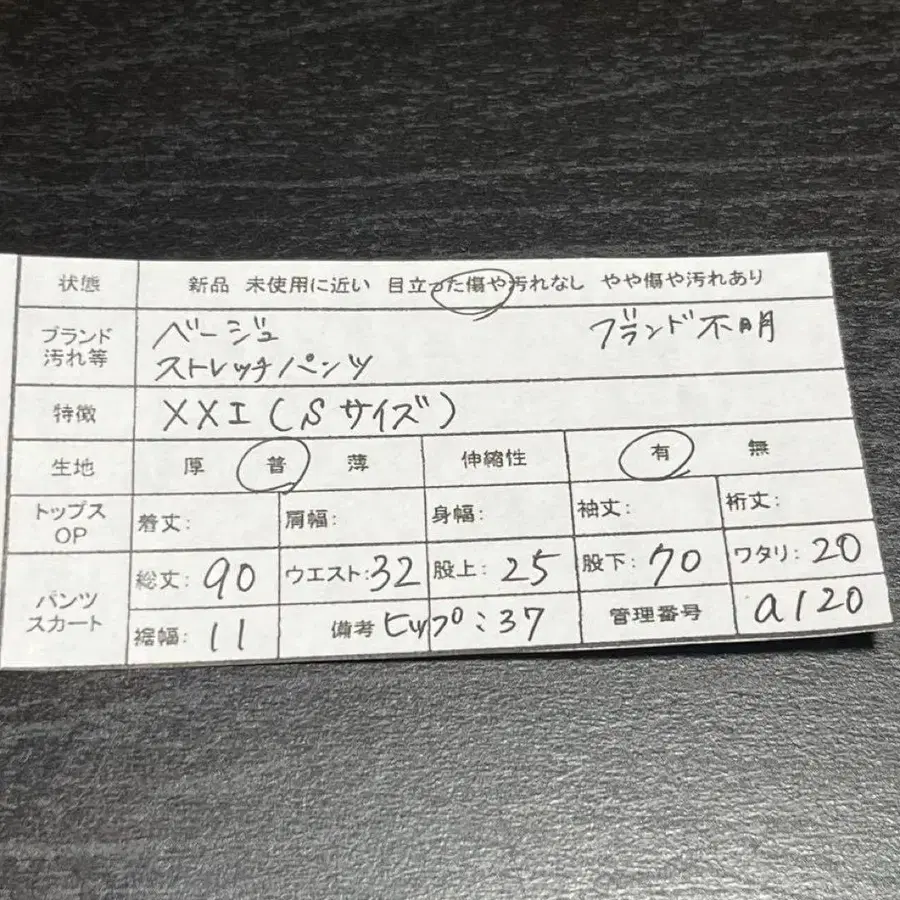 状態 新品 未使用に近い 目立った傷や汚れなし やや傷や汚れあり
ブランド 汚れ等 ベージュ ブランド不明
ストレッチパンツ
特徴 XXI(Sサイズ)
生地 厚 普 薄 伸縮性 有 無
トップス OP 着丈: 肩幅: 身幅: 袖丈: 裄丈:
パンツ スカート 総丈: 90 ウエスト: 32 股上: 25 股下: 70 ワタリ: 20
裾幅: 11 備考 ヒップ:37 管理番号 a120